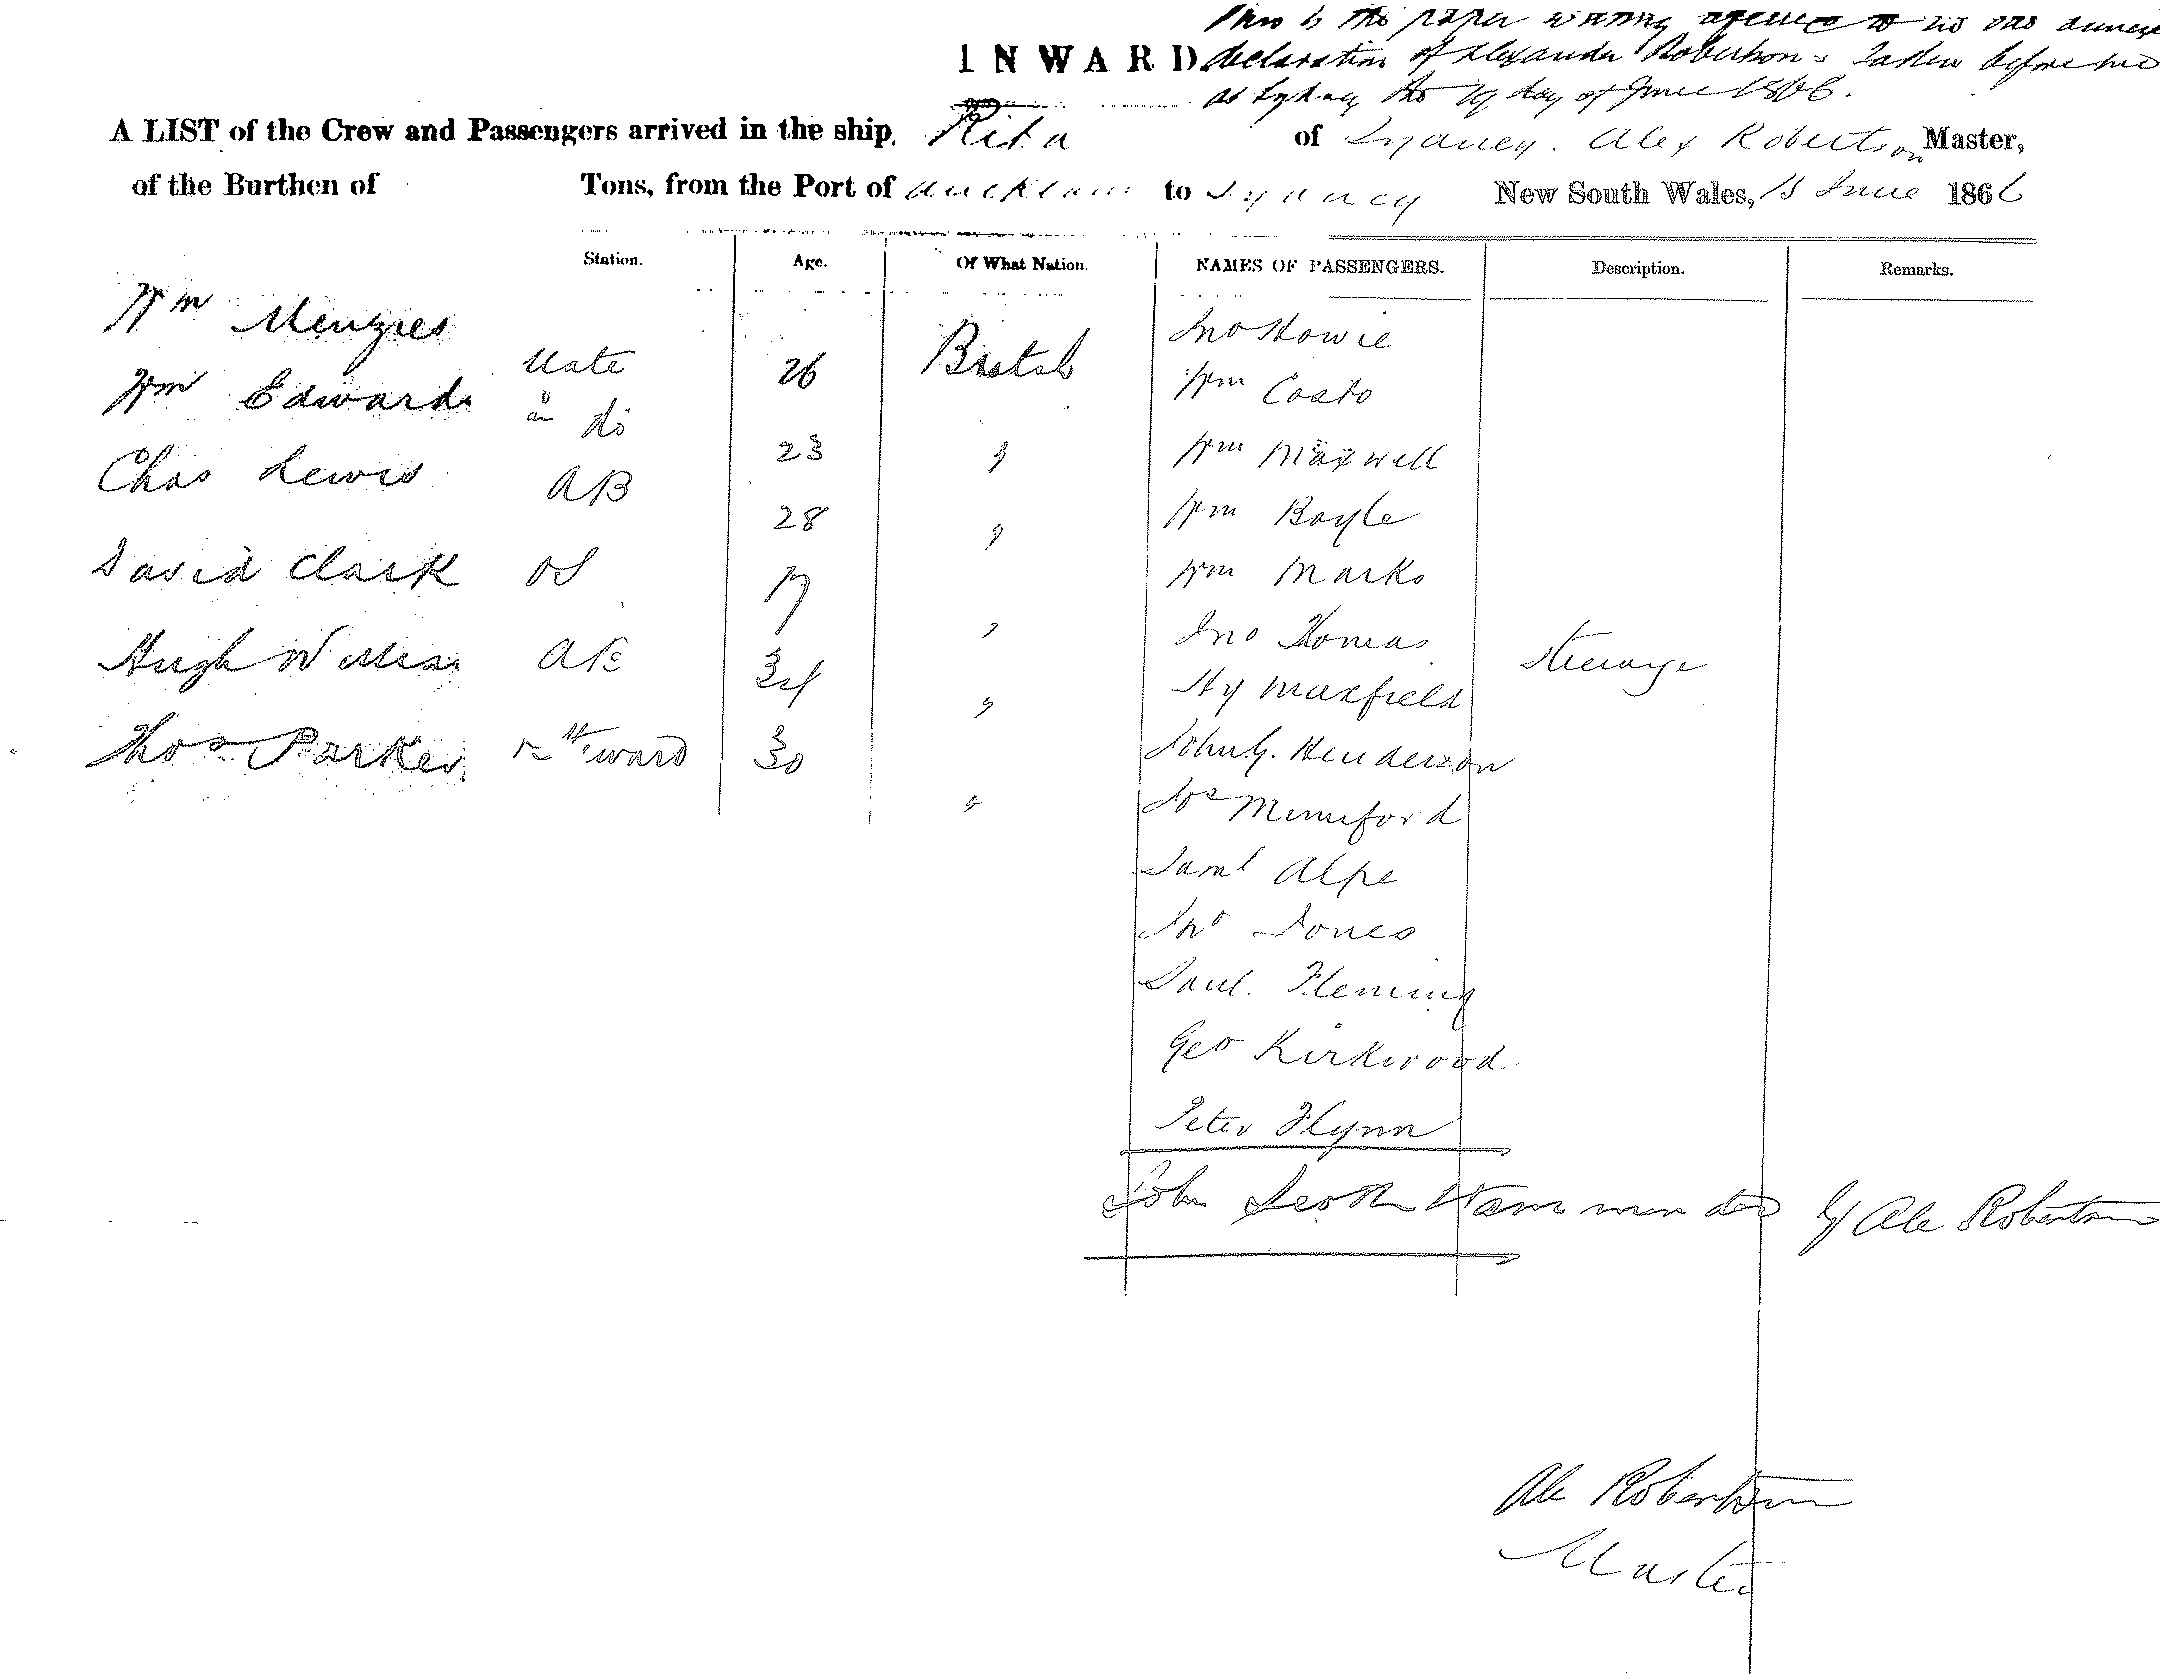 This is the paper writing
INWARD declaration of Alexander Robertson Taken before me
at Sydney this 19 day of June 1866.
A LIST of the Crew and Passengers arrived in the ship, Rita of Sydney. Alex Robertson Master,
of the Burthen of Tons, from the Port of Auckland to Sydney New South Wales, 15 June 1866
Station. Age. Of What Nation. NAMES OF PASSENGERS. Description. Remarks.
Wm Menzies Mate 26 British
Wm Edwards do 23 "
Chas Lewis AB 28 "
David Clark OS 17 "
Hugh AB 34 "
Thos Parker Steward 30 "
Jno Howie
Wm
Wm Maxwell
Wm Boyle
Wm Marks
Jno Thomas
Hy Maxfield
Steerage
John G. Henderson
Jos
Saml Alpe
Jno Jones
Saml. Fleming
Geo Kirkwood
Peter Flynn
John Alex Robertson
Alex Robertson
Master